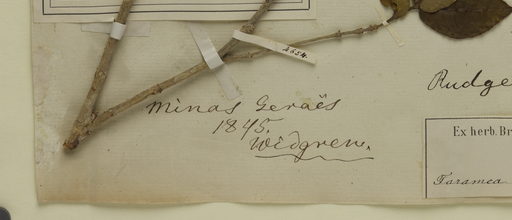 2654.
Minas Geraës
1845.
Widgren.
Rudge
Ex herb. Br
Faramea